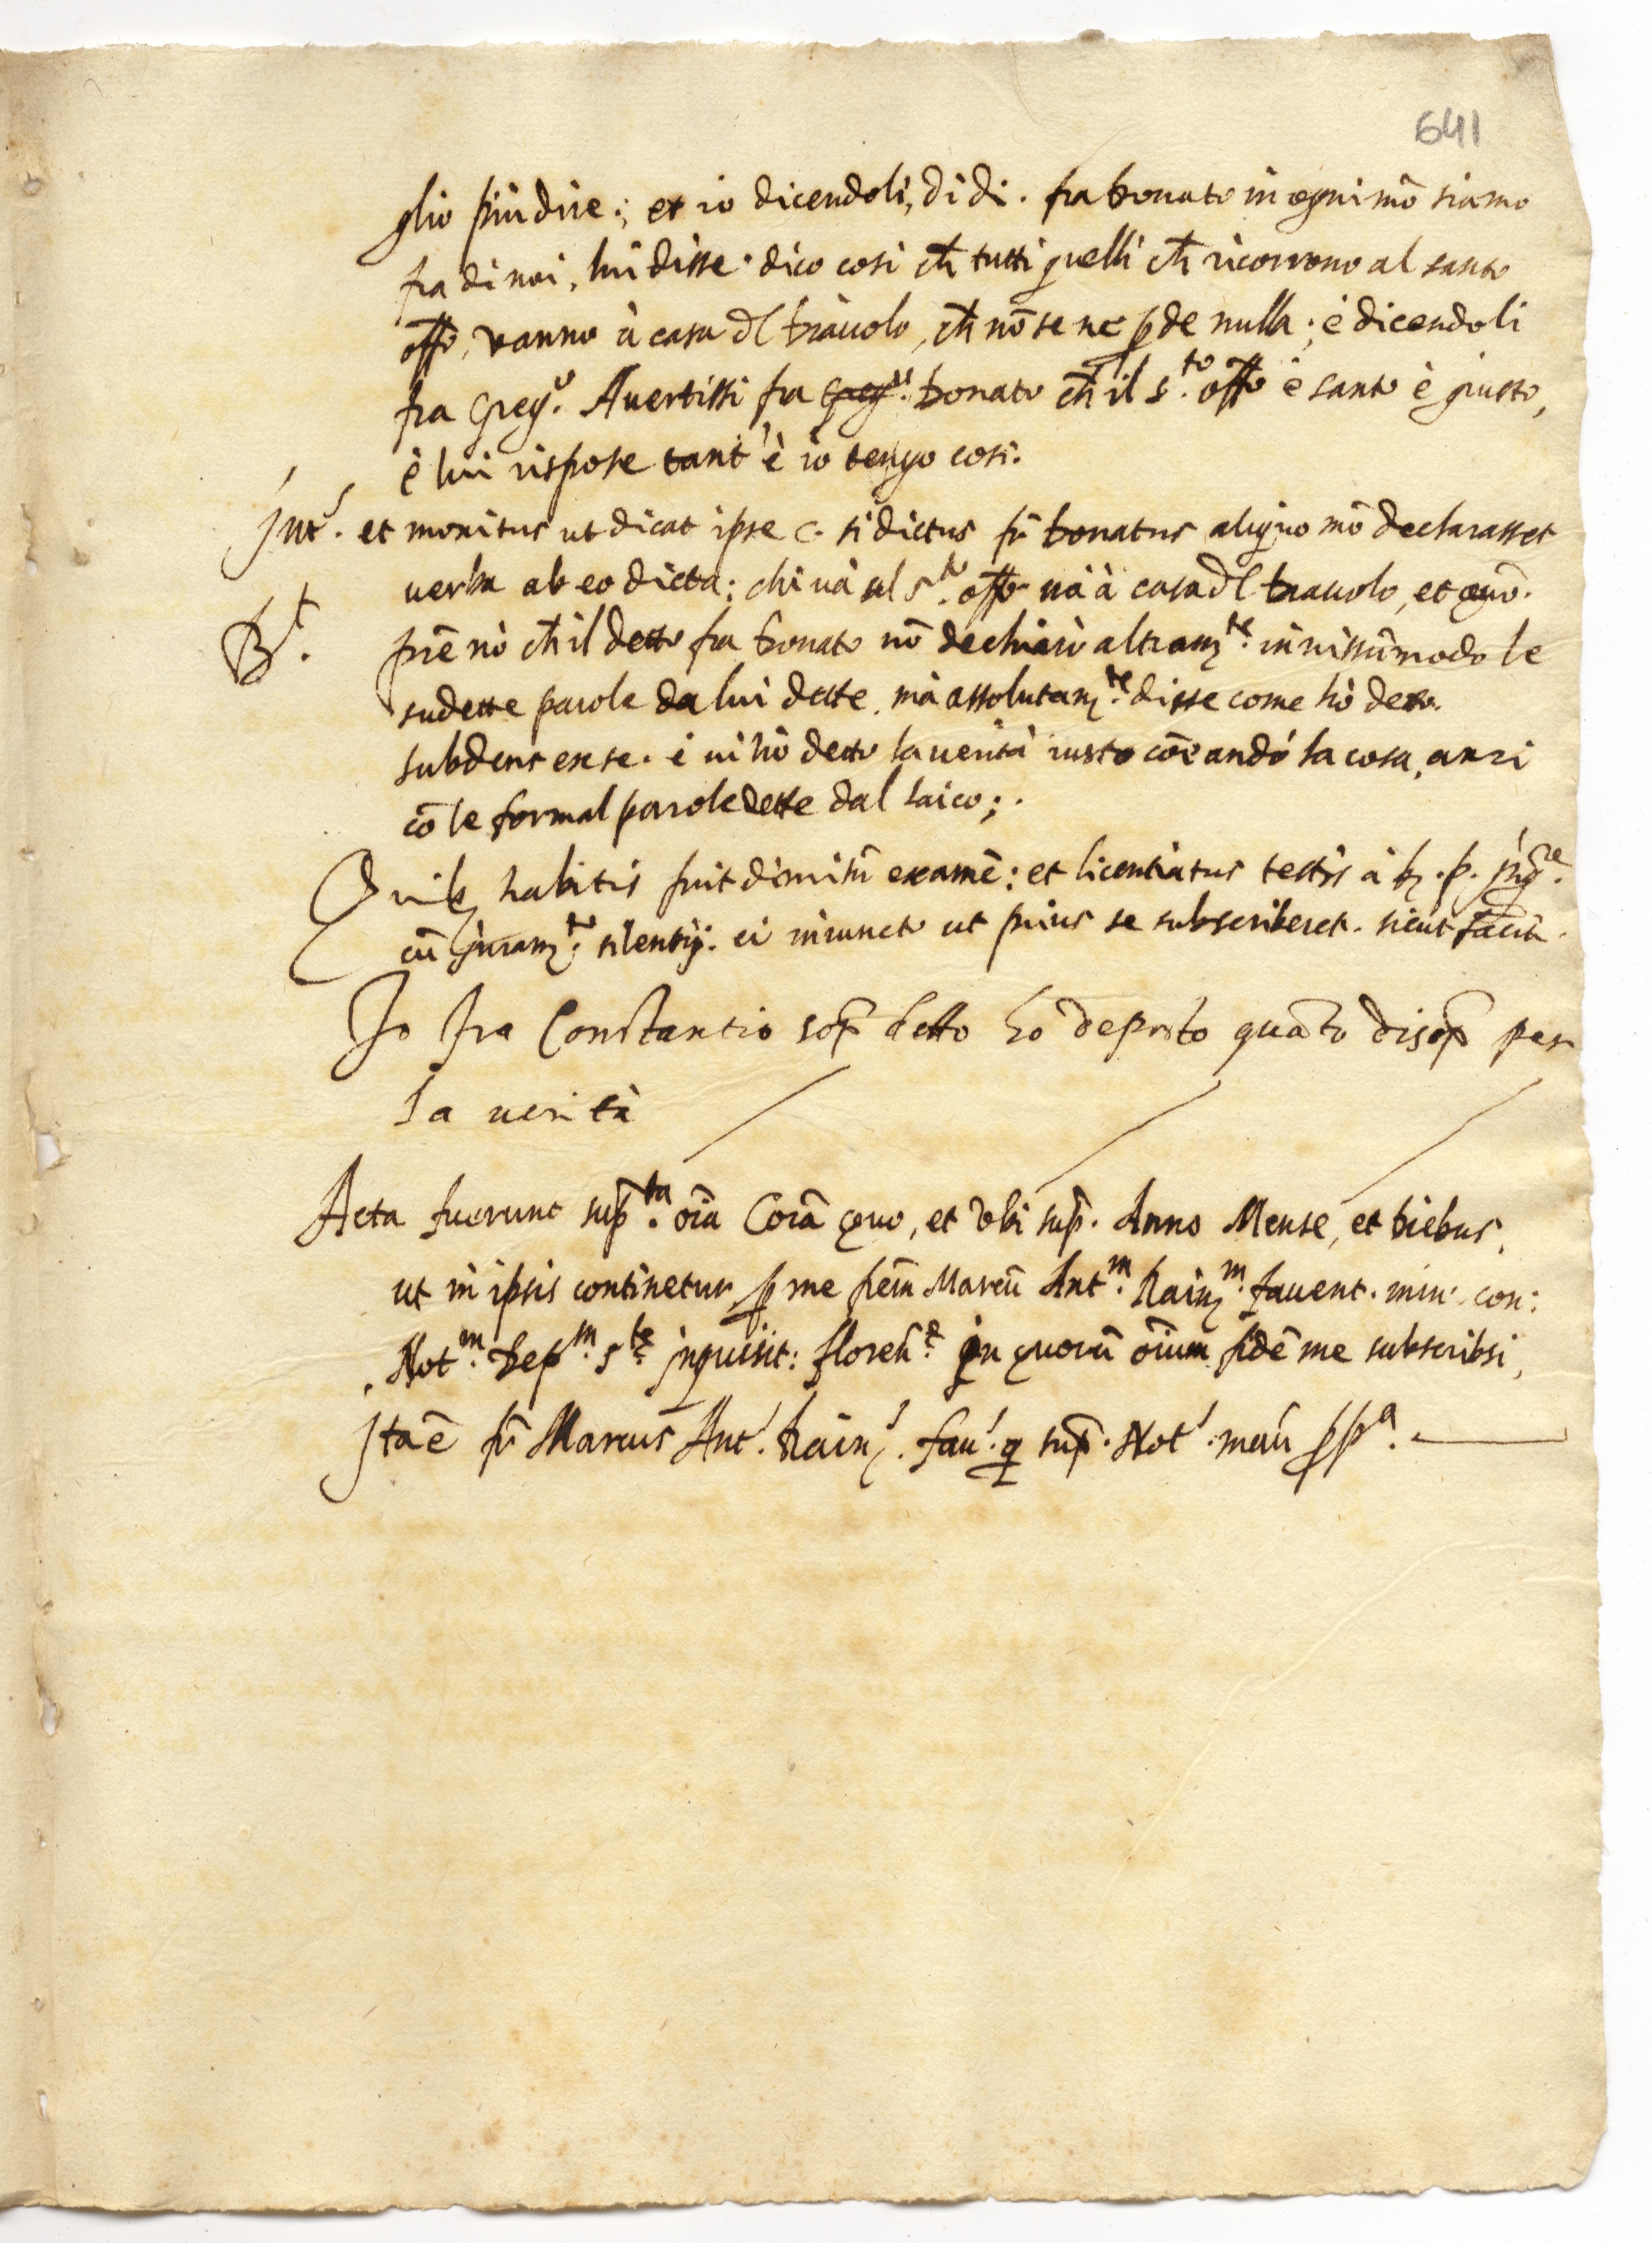 641
glio più dire; et io dicendoli, di di. fra Donato in ogni mõ siamo
fra di noi, lui disse. dico cosi ch̃ tutti quelli ch̃ ricorrono al santo
offo, vanno à casa dl diauolo, ch̃ nõ se ne ꝑde nulla; è dicendoli
fra Greg.º Auertissi fra Donato ch̃ il s.to offo è santo è giusto,
è lui rispose tant' è io tengo cosi.
Int.s et monitus ut dicat ipse c. si dictus fr̃ Donatus aliquo mõ declarasset
uerba ab eo dicta: chi uà al s.to offo uà à casa dl diauolo, et quõ.
R.t pr̃e nò ch̃ il detto fra Donato nõ dechiarò altram.te in nissũ modo le
sudette parole da lui dette, mà assolutam.te disse come hò detto.
subdens ex se. è ui hò detto la uerità iusto cõe andò la cosa, anzi
cõ le formal parole dette dal laico;.
Quib; habitis fuit dimissũ examẽ: et licentiatus testis à p. Inq.re
cũ iuram.to silentij. ei iniuncto ut prius se subscriberet. sicut fecit.
Io fra Constantio sop̃ detto ho deposto quãto disop̃ per
la uerità
Acta fuerunt sup̃.ta oĩa Corã quo, et Vbi sup̃. Anno Mense, et diebus,
ut in ipsis continetur ꝑ me frem̃ Marcũ Ant.m Rain.m fauent. min. con:
Not.m Dep.m s.te Inquisit: floren.e In quorũ oĩum fidẽ me subscribsi,
Ita ẽ fr̃ Marcus Ant.s Rain.s fau.s q sup̃. Not.s manũ ꝓp.a